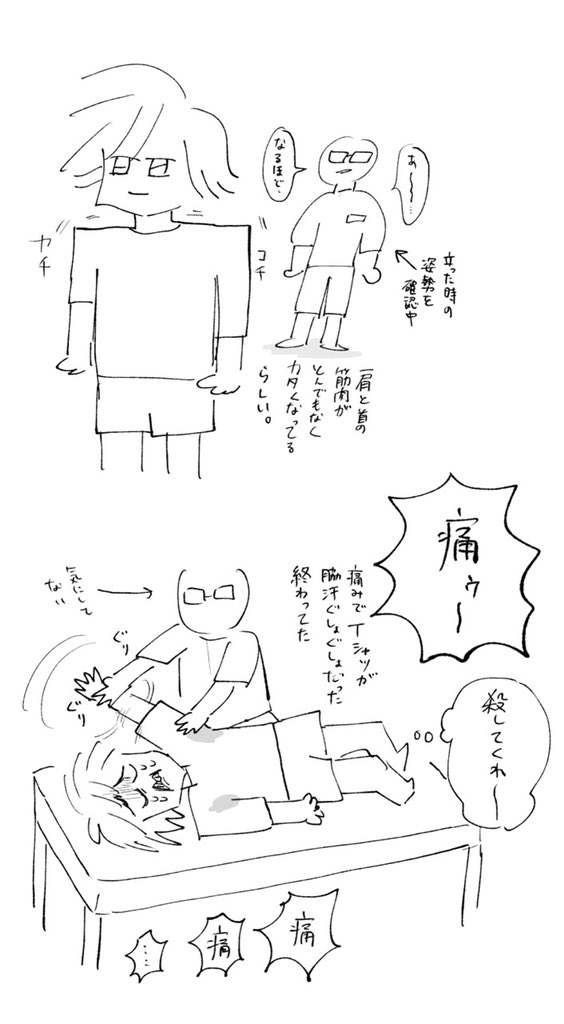 あ〜〜…
なるほど、
立った時の
姿勢を
確認中
コチ
カチ
肩と首の
筋肉が
とんでもなく
カタくなってる
らしい。
痛ゥ〜
痛みでTシャツが
脇汗ぐしょぐしょだった
終わってた
気にして
ない
ぐり
ぐり
殺してくれ〜
痛
痛
…